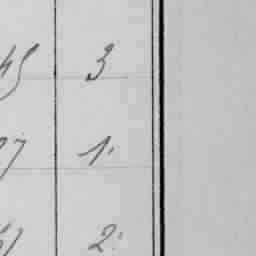 45 3
7 1.
2.